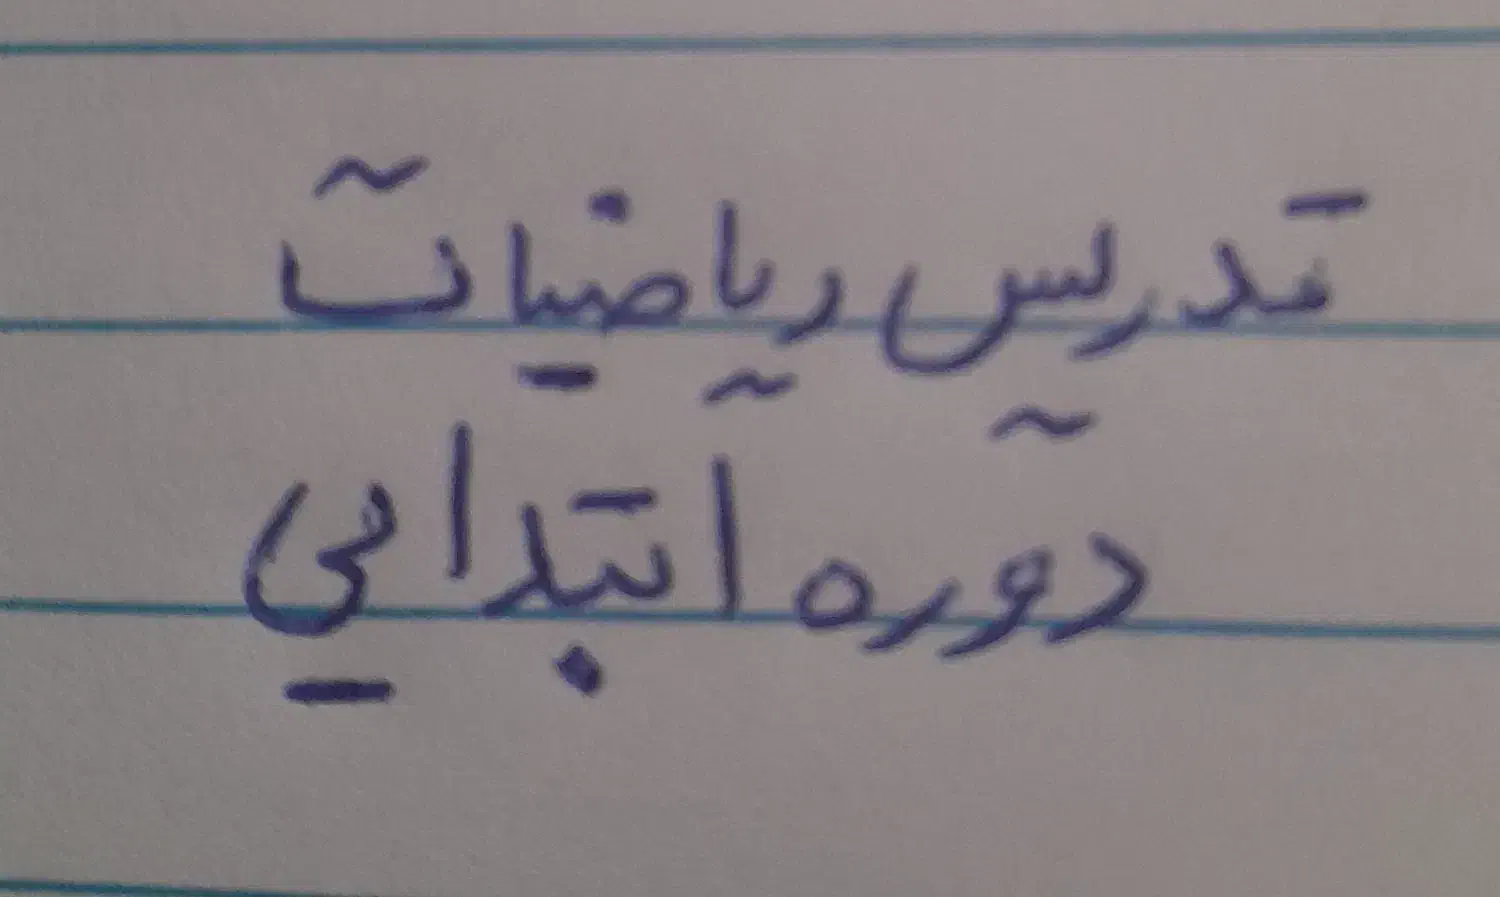 تدریس ریاضیات
دوره ابتدایی